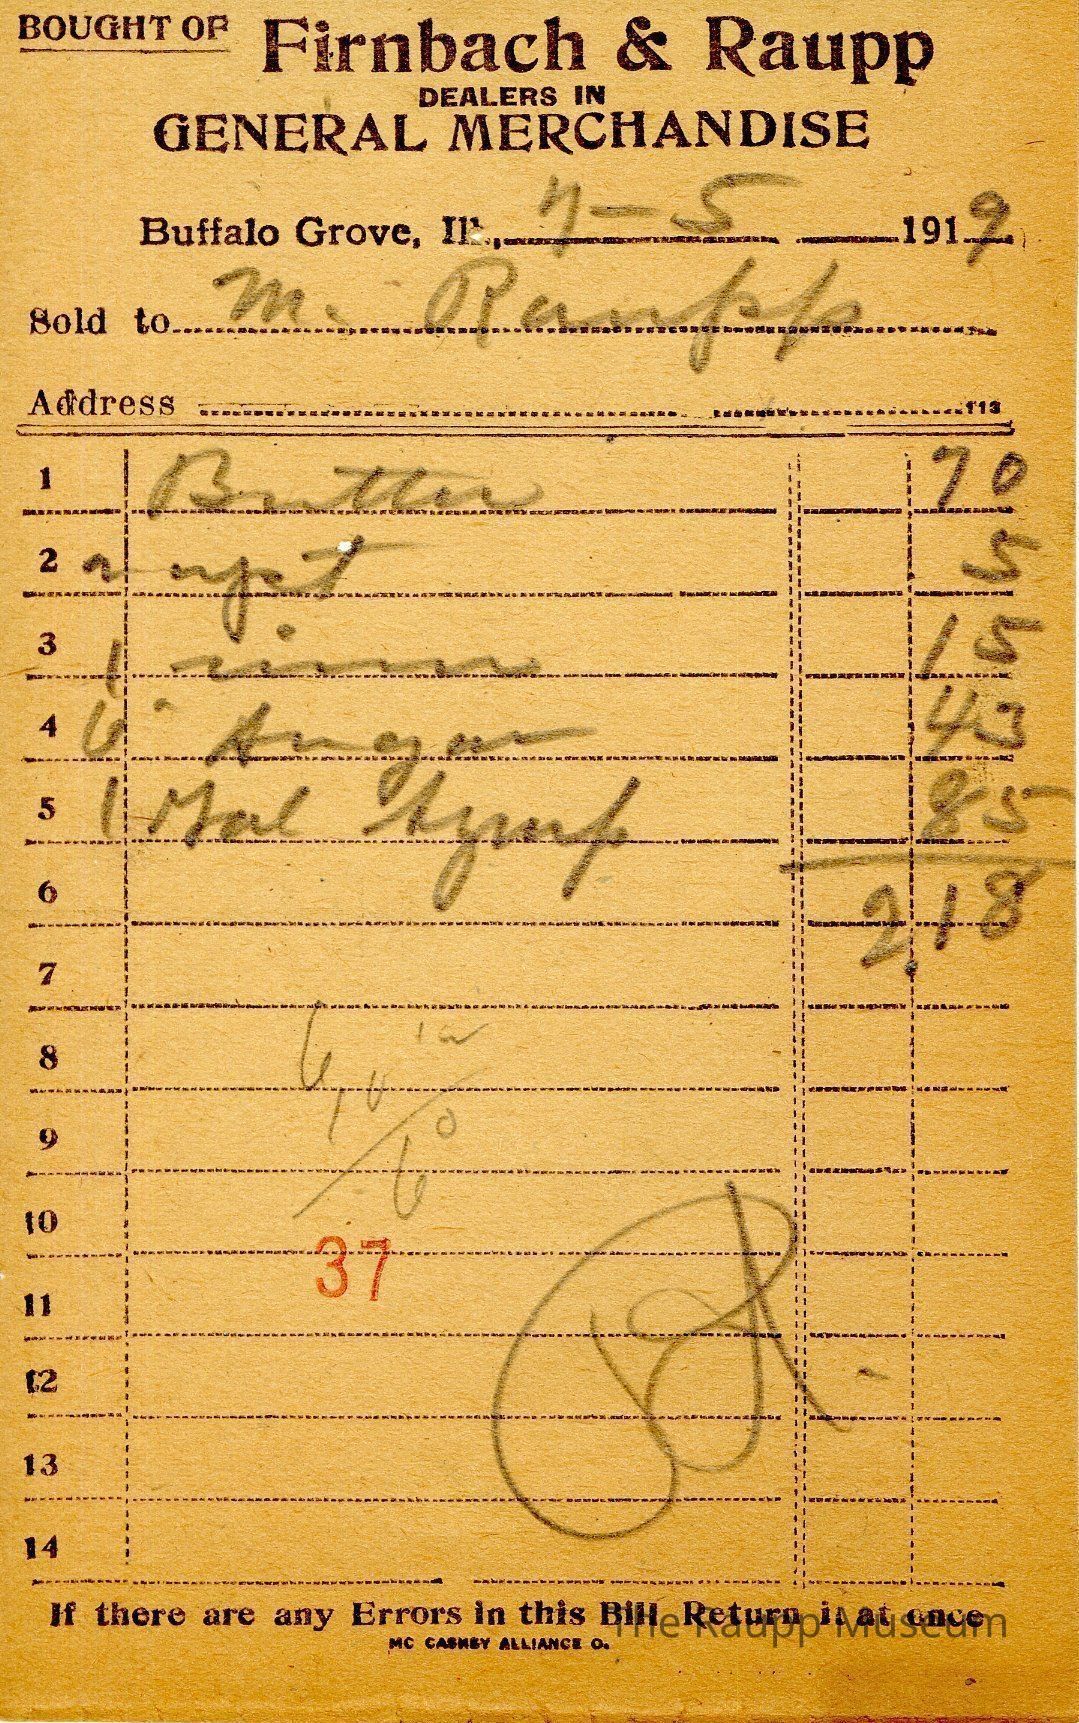 BOUGHT OF Firnbach & Raupp
DEALERS IN
GENERAL MERCHANDISE
Buffalo Grove, Ill., 7-5 1919
Sold to M. Raupp
Address 113
1 Butter 70
2 2 5
3 1 15
4 6 Sugar 43
5 1 Gal Syrup 85
6 2.18
7
8
9
10
37
11
12
13
14
If there are any Errors in this Bill Return it at once
The Raupp Museum
MC CASKEY ALLIANCE O.